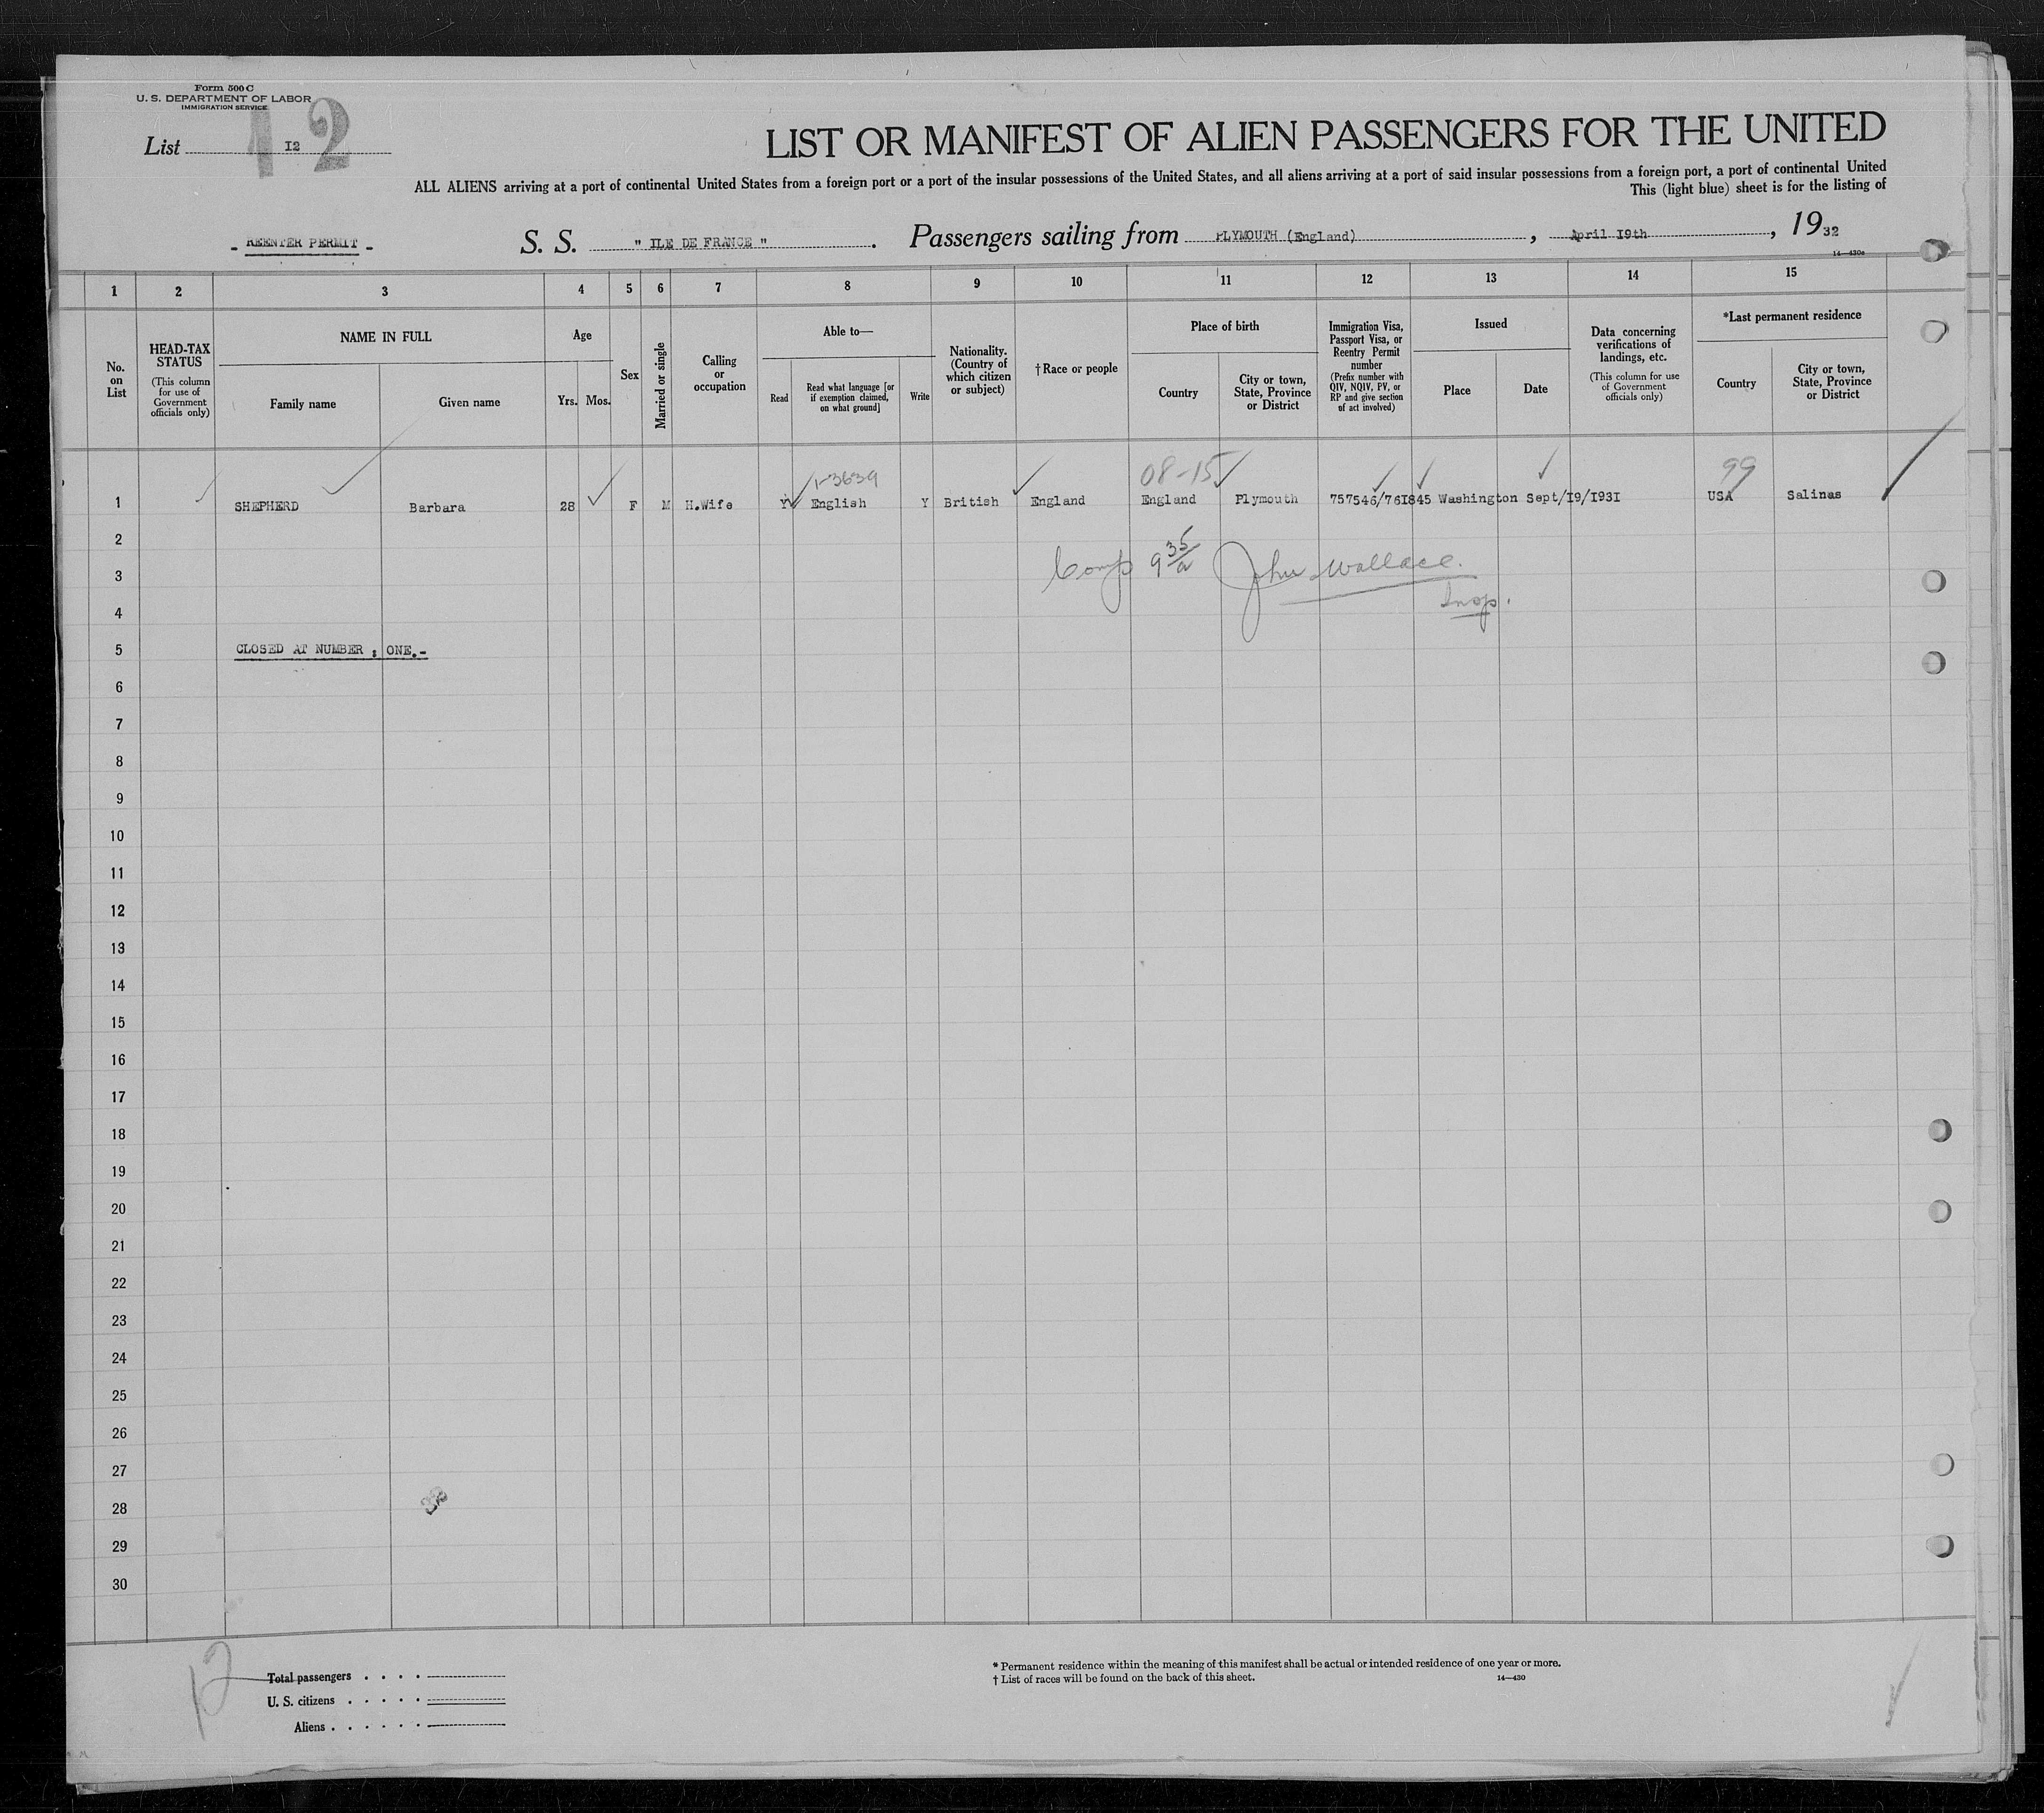 Form 500 C
U. S. DEPARTMENT OF LABOR
IMMIGRATION SERVICE
12
List I2
LIST OR MANIFEST OF ALIEN PASSENGERS FOR THE UNITED
ALL ALIENS arriving at a port of continental United States from a foreign port or a port of the insular possessions of the United States, and all aliens arriving at a port of said insular possessions from a foreign port, a port of continental United
This (light blue) sheet is for the listing of
- REENTER PERMIT -
S. S. " ILE DE FRANCE ". Passengers sailing from PLYMOUTH (England), April I9th, 1932
14—430a
1 2 3 4 5 6 7 8 9 10 11 12 13 14 15
No. on List
HEAD-TAX STATUS
(This column for use of Government officials only)
NAME IN FULL
Family name
Given name
Age
Yrs.
Mos.
Sex
Married or single
Calling or occupation
Able to—
Read
Read what language [or if exemption claimed, on what ground]
Write
Nationality. (Country of which citizen or subject)
†Race or people
Place of birth
Country
City or town, State, Province or District
Immigration Visa, Passport Visa, or Reentry Permit number
(Prefix number with QIV, NQIV, PV, or RP and give section of act involved)
Issued
Place
Date
Data concerning verifications of landings, etc.
(This column for use of Government officials only)
*Last permanent residence
Country
City or town, State, Province or District
1-3639 08-15 99
1 SHEPHERD Barbara 28 F M H.Wife Y English Y British England England Plymouth 757546/76I845 Washington Sept/I9/I93I USA Salinas
2
Comp 9 35/a John Wallace.
3
Insp.
4
5 CLOSED AT NUMBER ; ONE.-
6
7
8
9
10
11
12
13
14
15
16
17
18
19
20
21
22
23
24
25
26
27
28
29
30
12
Total passengers . . . .
U. S. citizens . . . . .
Aliens . . . . . .
* Permanent residence within the meaning of this manifest shall be actual or intended residence of one year or more.
† List of races will be found on the back of this sheet.
14—430